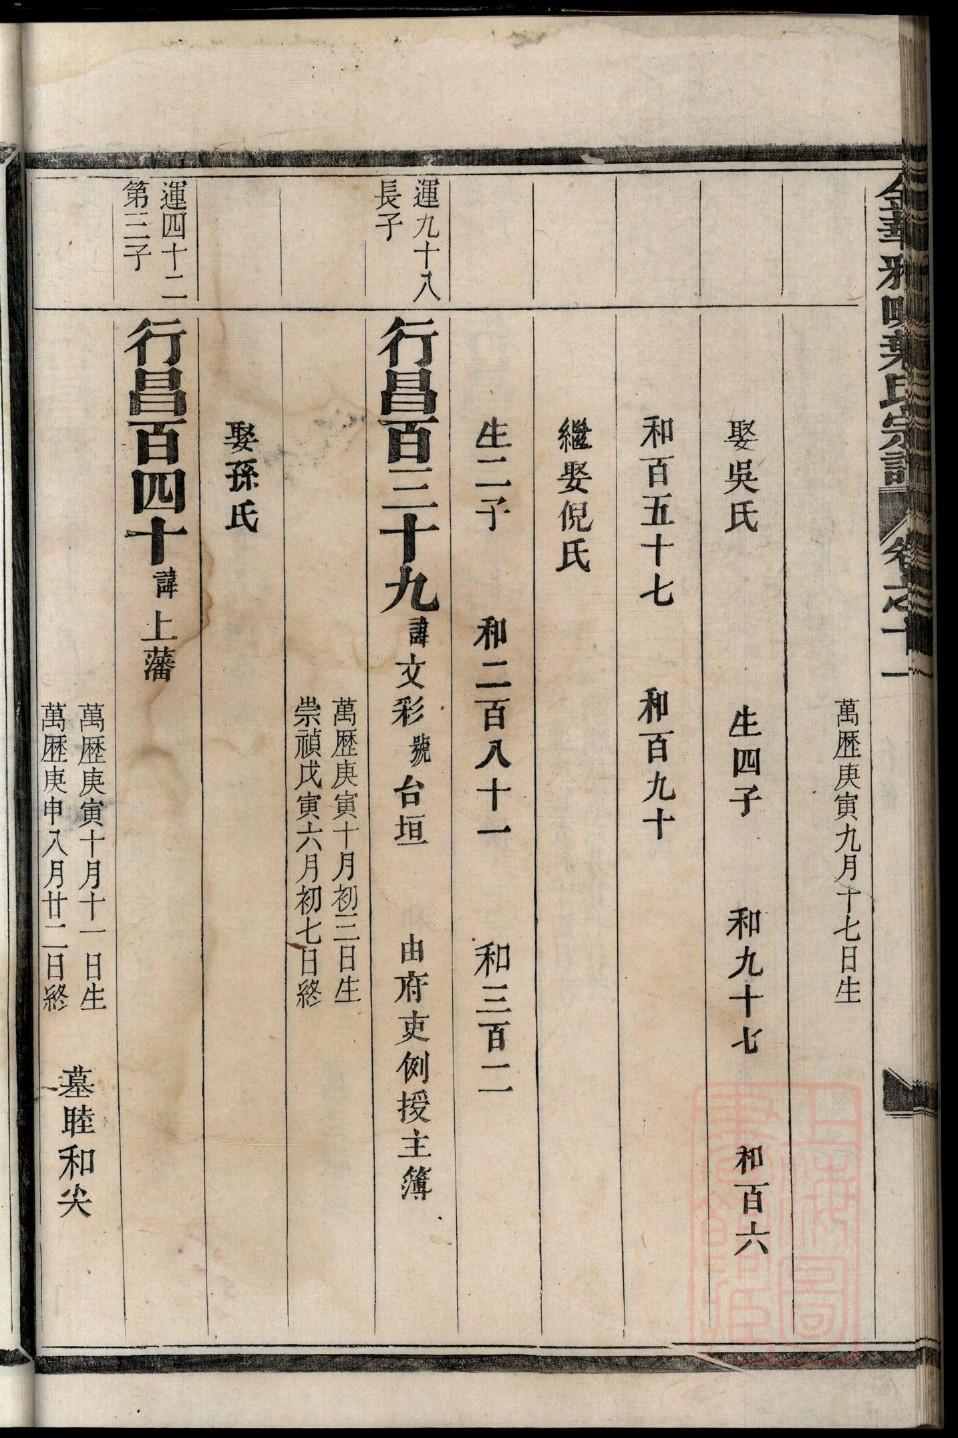 萬歷庚寅九月十七日生
娶吳氏 生四子 和九十七 和百六
和百五十七 和百九十
繼娶倪氏
生二子 和二百八十一 和三百二
運九十八
長子
行昌百三十九 諱文彩 號台垣 由府吏例授主簿
萬歷庚寅十月初三日生
崇禎戊寅六月初七日終
娶孫氏
運四十二
第三子
行昌百四十 諱上藩
萬歷庚寅十月十一日生
萬歷庚申八月廿二日終
墓睦和尖